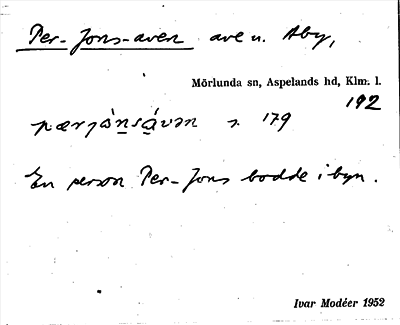 Per-Jons-aven ave n. Åby,
Mörlunda sn, Aspelands hd, Klm. l.
192
pærjònsávən s. 179
En person Per-Jons bodde i byn.
Ivar Modéer 1952